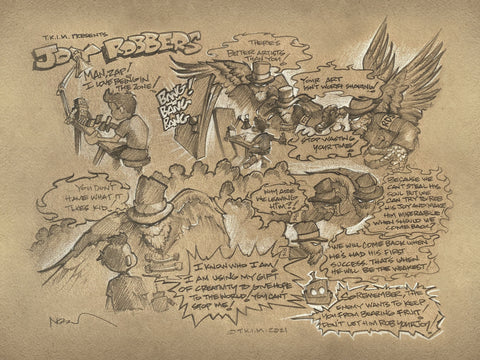 T.K.I.M. PRESENTS
JOY ROBBERS
MAN, ZAP!
I LOVE BEING IN
THE ZONE!
BANG!
BANG
BANG
THERE'S
BETTER ARTISTS
THAN YOU!
YOUR ART
ISN'T WORTH SHARING!
STOP WASTING
YOUR TIME!
YOU DON'T
HAVE WHAT IT
TAKES KID.
I KNOW WHO I AM!
I AM USING MY GIFT
OF CREATIVITY TO GIVE HOPE
TO THE WORLD! YOU CAN'T
STOP ME!
WHY ARE
WE LEAVING
HIM?!
BECAUSE WE
CAN'T STEAL HIS
SOUL BUT WE
CAN TRY TO ROB
HIS JOY AND MAKE
HIM MISERABLE
WHEN SHOULD WE
COME BACK?
WE WILL COME BACK WHEN
HE'S HAD HIS FIRST
SUCCESS. THAT'S WHEN
HE WILL BE THE WEAKEST
SO REMEMBER, THE
ENEMY WANTS TO KEEP
YOU FROM BEARING FRUIT
DON'T LET HIM ROB YOUR JOY!
©T.K.I.M. 2021